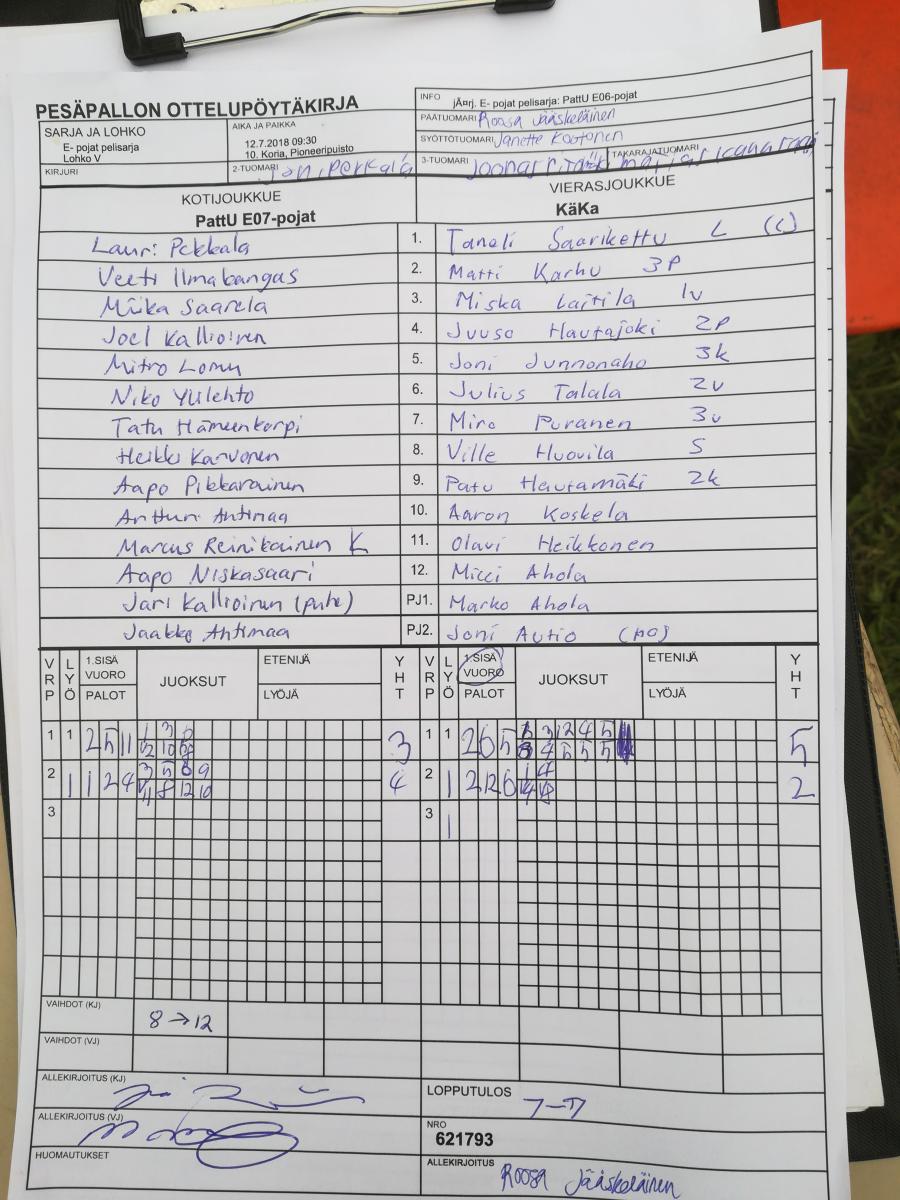 PESÄPALLON OTTELUPÖYTÄKIRJA
INFO jÄ¤rj. E- pojat pelisarja: PattU E06-pojat
PÄÄTUOMARI Roosa Jääskeläinen
SYÖTTÖTUOMARI Janette Kootonen
SARJA JA LOHKO
E- pojat pelisarja
Lohko V
AIKA JA PAIKKA
12.7.2018 09:30
10. Koria, Pioneeripuisto
KIRJURI
2-TUOMARI Joni Pekkala
3-TUOMARI Joonas
TAKARAJATUOMARI
KOTIJOUKKUE
PattU E07-pojat
VIERASJOUKKUE
KäKa
Lauri Pekkala 1. Taneli Saarikettu L (c)
Veeti Ilmakangas 2. Matti Karhu 3P
Miika Saarela 3. Miska Laitila 1v
Joel Kallioinen 4. Juuso Hautajoki 2P
Mitro Lomu 5. Joni Junnonaho 3k
Niko Ylilehto 6. Julius Talala 2v
Tatu Hämeenkorpi 7. Miro Puranen 3v
Heikki Karvonen 8. Ville Huovila S
Aapo Pikkarainen 9. Patu Hautamäki 2k
Artturi Ahtimaa 10. Aaron Koskela
Marcus Reinikainen K 11. Olavi Heikkonen
Aapo Niskasaari 12. Micci Ahola
Jari Kallioinen (puhe) PJ1. Marko Ahola
Jaakko Ahtimaa PJ2. Joni Autio
VRP LYÖ 1.SISÄ VUORO PALOT JUOKSUT ETENIJÄ LYÖJÄ YHT VRP LYÖ 1.SISÄ VUORO PALOT JUOKSUT ETENIJÄ LYÖJÄ YHT
1 1 2 5 11 3 1 1 2 6 5 3 12 4 5 5
2 1 1 2 4 3 5 8 9 4 2 1 2 12 6 1 4 2
11 8 12 10
3 3 1
VAIHDOT (KJ) 8 → 12
VAIHDOT (VJ)
ALLEKIRJOITUS (KJ)
LOPPUTULOS 7-7
ALLEKIRJOITUS (VJ)
NRO
621793
HUOMAUTUKSET
ALLEKIRJOITUS Roosa Jääskeläinen